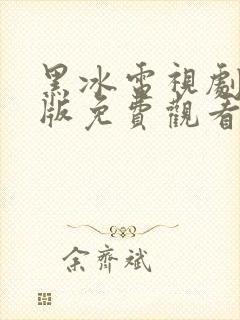 黑冰雷視劇
版免費觀看
余齊斌